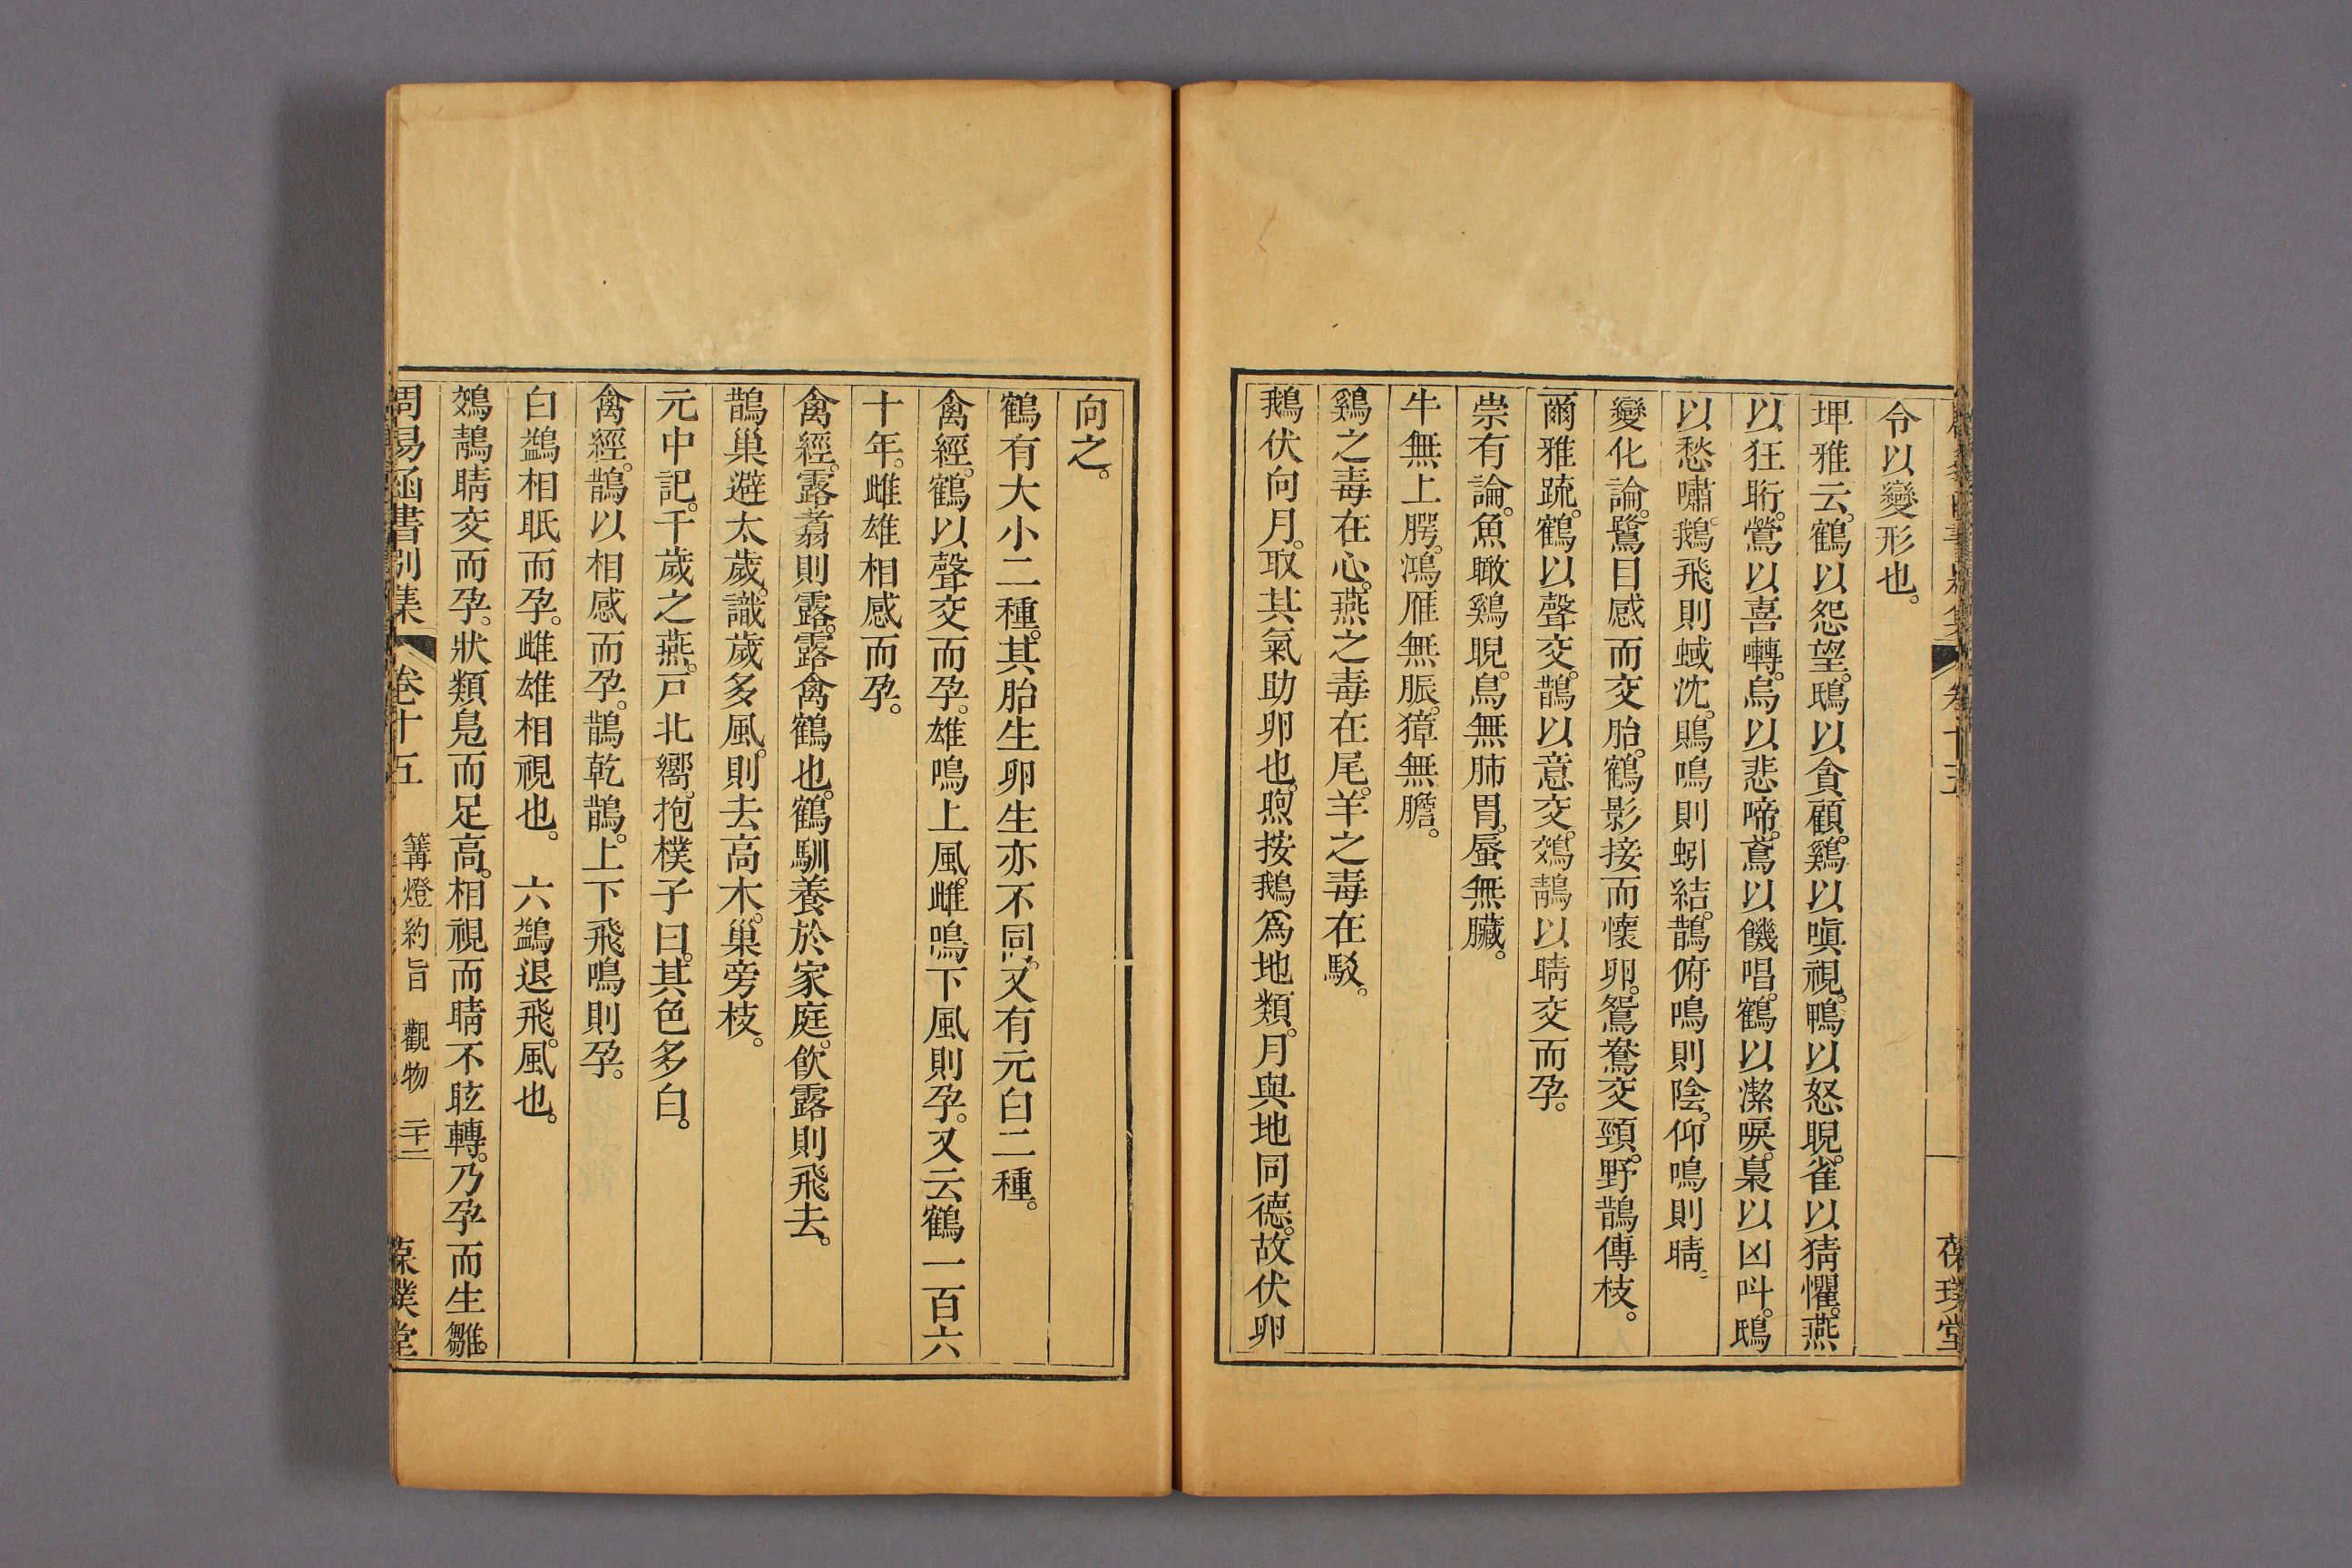 令以變形也。
埤雅云。鶴以怨望。鴟以貪顧。鷄以嗔視。鴨以怒睨。雀以猜懼。燕
以狂眄。鶯以喜囀。烏以悲啼。鳶以饑唱。鶴以潔唳。梟以凶呌。鴟
以愁嘯。鵝飛則蜮沈。鵙鳴則蚓結。鵲俯鳴則陰。仰鳴則晴。
變化論。鷺目感而交胎。鶴影接而懷卵。鴛鴦交頸。野鵲傳枝。
爾雅疏。鶴以聲交。鵲以意交。鵁鶄以睛交而孕。
崇有論。魚瞰鷄睨。鳥無肺胃。蜃無臟。
牛無上腭。鴻雁無脤。獐無膽。
鷄之毒在心。燕之毒在尾。羊之毒在馭。
鵝伏向月。取其氣助卵也。煦按鵝爲地類。月與地同德。故伏卵
卷十五
葆璞堂
向之。
鶴有大小二種。其胎生卵生亦不同。又有元白二種。
禽經。鶴以聲交而孕。雄鳴上風。雌鳴下風則孕。又云鶴一百六
十年。雌雄相感而孕。
禽經。露翥則露。露禽鶴也。鶴馴養於家庭。飲露則飛去。
鵲巢避太歲。識歲多風。則去高木。巢旁枝。
元中記。千歲之燕。戸北嚮。抱樸子曰。其色多白。
禽經。鵲以相感而孕。鵲乾鵲。上下飛鳴則孕。
白鷁相眂而孕。雌雄相視也。　六鷁退飛。風也。
鵁鶄睛交而孕。狀類鳧而足高。相視而睛不眩轉。乃孕而生雛。
周易函書別集　卷十五　篝燈約旨　觀物　二十二　葆璞堂